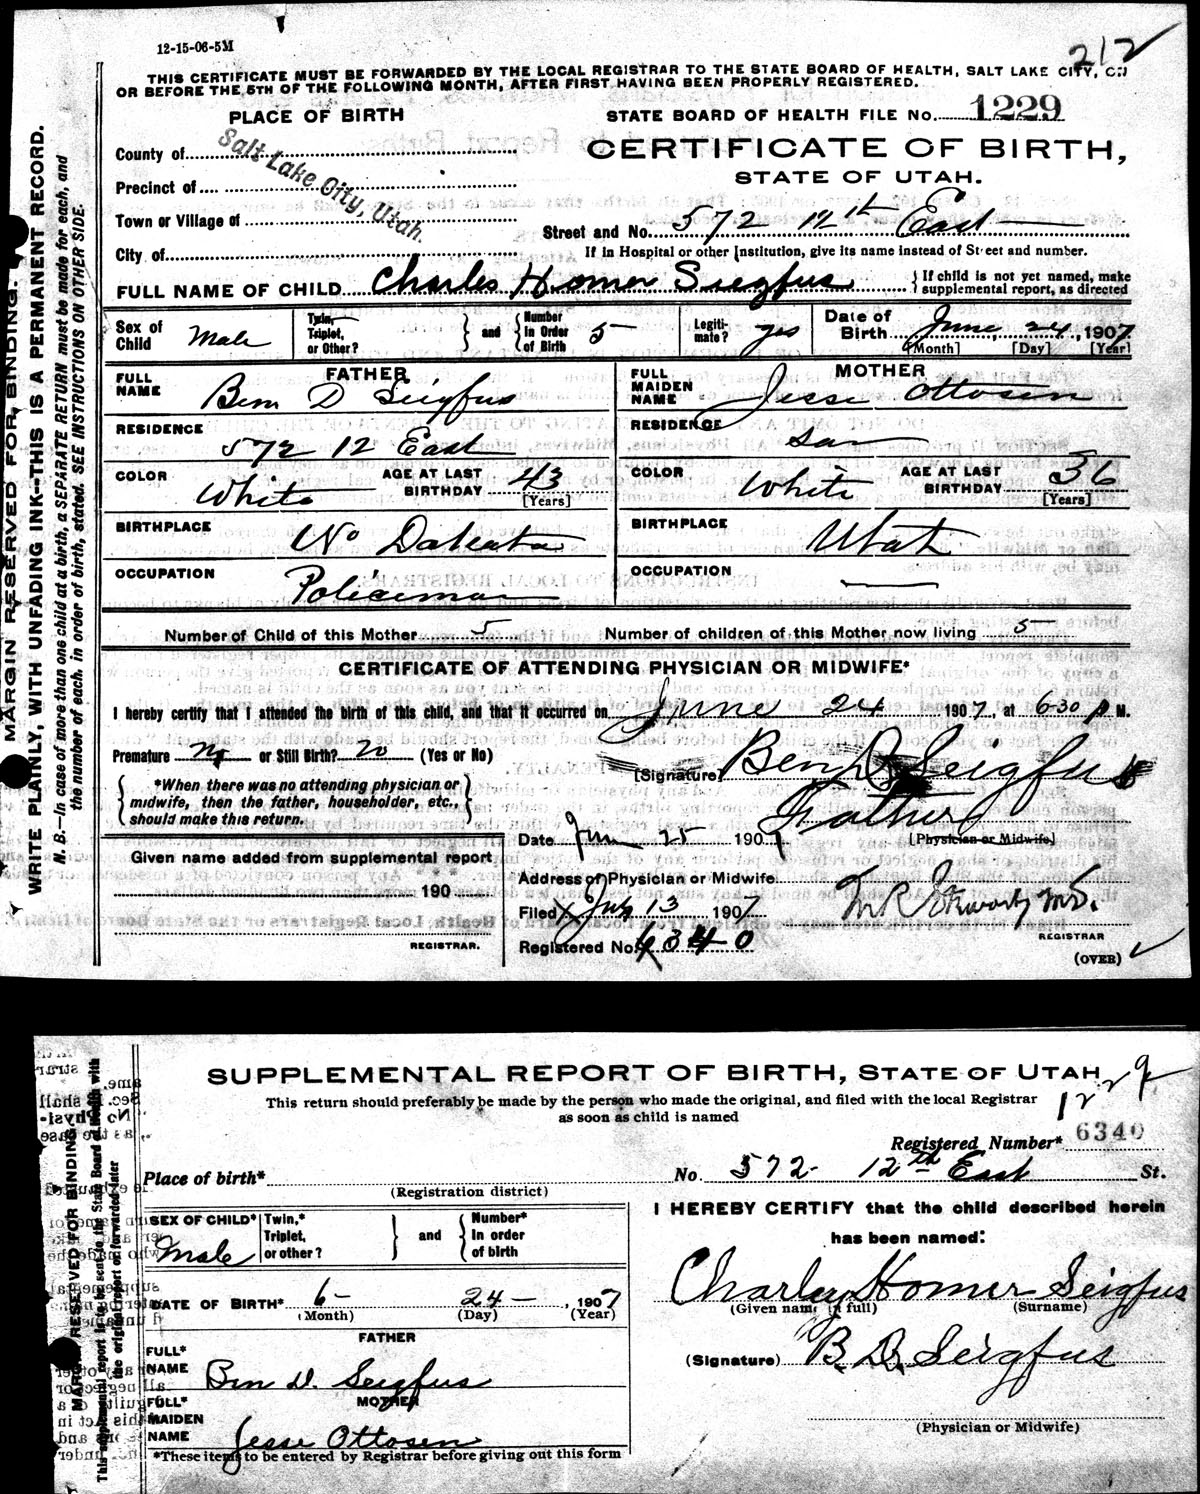 12-15-06-5M
212
THIS CERTIFICATE MUST BE FORWARDED BY THE LOCAL REGISTRAR TO THE STATE BOARD OF HEALTH, SALT LAKE CITY, ON
OR BEFORE THE 5TH OF THE FOLLOWING MONTH, AFTER FIRST HAVING BEEN PROPERLY REGISTERED.
PLACE OF BIRTH
STATE BOARD OF HEALTH FILE No. 1229
CERTIFICATE OF BIRTH,
STATE OF UTAH.
County of
Precinct of
Town or Village of
City of
Salt Lake City, Utah.
Street and No. 572 12th East
If in Hospital or other Institution, give its name instead of Street and number.
FULL NAME OF CHILD Charles Homer Siegfus
If child is not yet named, make
supplemental report, as directed
Sex of Child Male
Twin, Triplet, or Other?
and
Number in Order of Birth 5
Legiti-mate? yes
Date of Birth June 24, 1907
[Month] [Day] [Year]
FATHER
FULL NAME Ben D Seigfus
RESIDENCE 572 12 East
COLOR White
AGE AT LAST BIRTHDAY 43
[Years]
BIRTHPLACE No Dakota
OCCUPATION Policeman
MOTHER
FULL MAIDEN NAME Jesse Ottosen
RESIDENCE
COLOR White
AGE AT LAST BIRTHDAY 36
[Years]
BIRTHPLACE Utah
OCCUPATION
Number of Child of this Mother 5
Number of children of this Mother now living 5
CERTIFICATE OF ATTENDING PHYSICIAN OR MIDWIFE*
I hereby certify that I attended the birth of this child, and that it occurred on June 24 1907, at 6:30 P M.
Premature No or Still Birth? no (Yes or No)
[Signature] Ben D Seigfus
Father
[Physician or Midwife]
*When there was no attending physician or
midwife, then the father, householder, etc.,
should make this return.
Date Jun 25 1907
Given name added from supplemental report
190
REGISTRAR.
Address of Physician or Midwife
Filed July 13 1907
M.D.
REGISTRAR
Registered No. 6340
(OVER)
MARGIN RESERVED FOR BINDING.
WRITE PLAINLY, WITH UNFADING INK--THIS IS A PERMANENT RECORD.
N. B.--In case of more than one child at a birth, a SEPARATE RETURN must be made for each, and
the number of each, in order of birth, stated. SEE INSTRUCTIONS ON OTHER SIDE.
SUPPLEMENTAL REPORT OF BIRTH, STATE OF UTAH
1229
This return should preferably be made by the person who made the original, and filed with the local Registrar
as soon as child is named
Registered Number* 6340
Place of birth*
(Registration district)
No. 572 12th East St.
SEX OF CHILD* Male
Twin,* Triplet, or other?
and
Number* In order of birth
I HEREBY CERTIFY that the child described herein
has been named:
Charley Homer Seigfus
(Given name in full) (Surname)
DATE OF BIRTH* 6- 24-, 1907
(Month) (Day) (Year)
FATHER
FULL* NAME Ben D. Seigfus
(Signature) B. D. Seigfus
(Physician or Midwife)
MOTHER
FULL* MAIDEN NAME Jesse Ottosen
*These items to be entered by Registrar before giving out this form
MARGIN RESERVED FOR BINDING.
This supplemental report is to be sent to the State Board of Health with
the original report or forwarded later